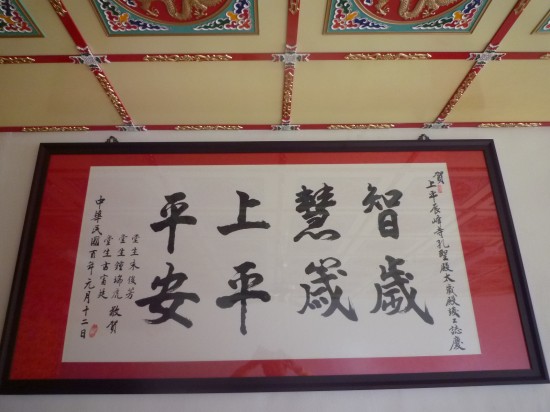 賀上平長峰寺孔聖殿太歲殿竣工誌慶
智慧上平
歲歲平安
堂生朱俊芳
堂生鍾瑞虎敬賀
堂生古富廷
中華民國百年元月十二日